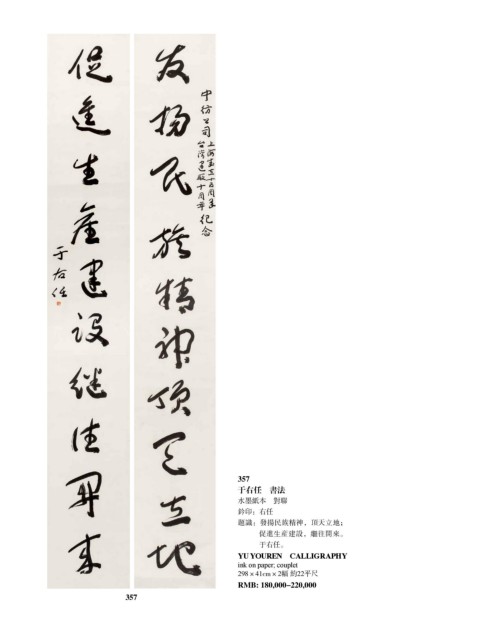 發揚民族精神頂天立地
中紡公司
上海建立十五周年
台灣建廠十周年
紀念
促進生產建設繼往開來
于右任
357
357
于右任　書法
水墨紙本　對聯
鈐印：右任
題識：發揚民族精神，頂天立地；
促進生産建設，繼往開來。
于右任。
YU YOUREN CALLIGRAPHY
ink on paper; couplet
298 × 41cm × 2幅 約22平尺
RMB: 180,000–220,000